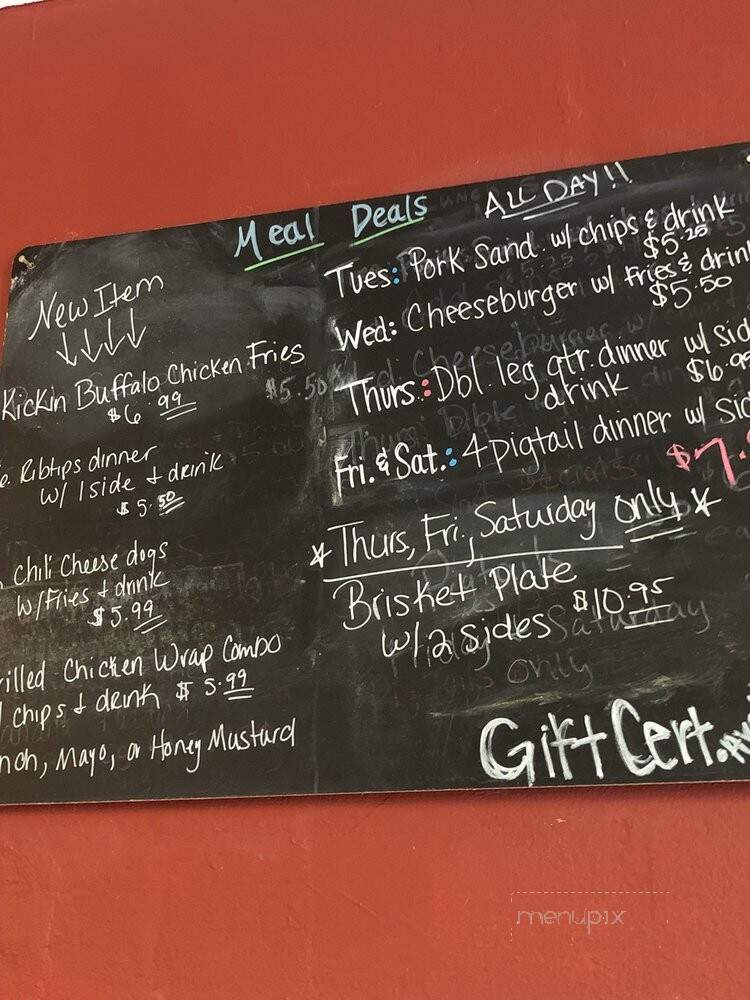 Meal Deals ALL DAY!!
New Item
Kickin Buffalo Chicken Fries
$6.99
Ribtips dinner
w/ 1 side & drink
$5.50
Chili Cheese dogs
w/ Fries & drink
$5.99
rilled Chicken Wrap Combo
chips & drink $5.99
nch, Mayo, or Honey Mustard
Tues: Pork Sand. w/ chips & drink
$5.25
Wed: Cheeseburger w/ Fries & drin
$5.50
Thurs: Dbl. leg qtr. dinner w/ sid
drink $6.9
Fri. & Sat.: 4 pigtail dinner w/ sid
$7.
*Thurs, Fri, Saturday only*
Brisket Plate
w/ 2 sides $10.95
Gift Cert.
menupix